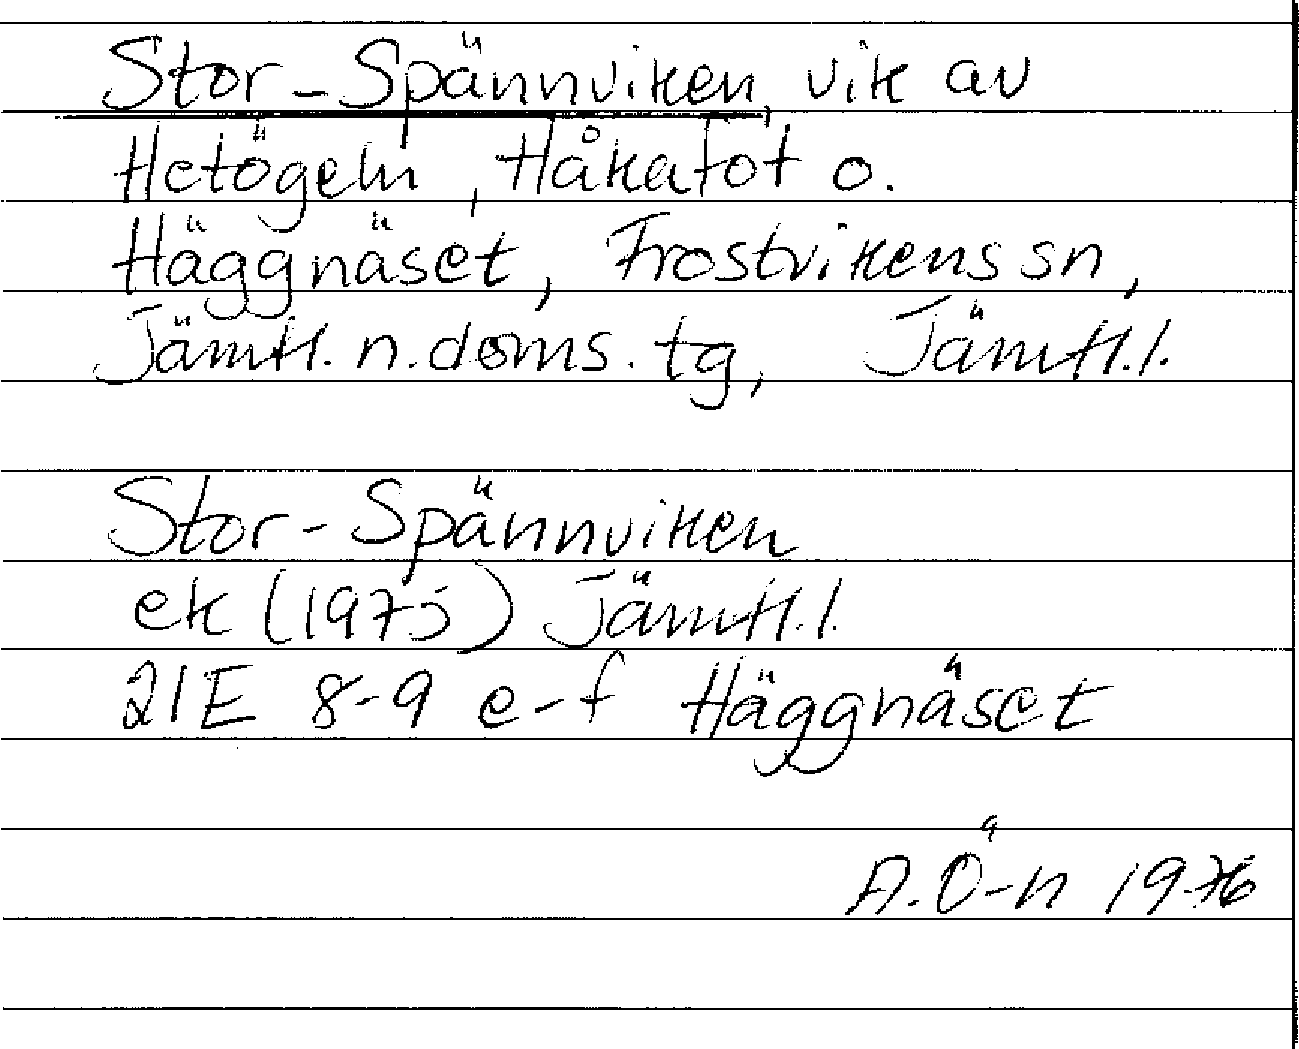 Stor-Spännviken, vik av
Hetögeln, Håkafot o.
Häggnäset, Frostvikens sn,
Jämtl. n. doms. tg, Jämtl. l.
Stor-Spännviken
ek (1975) Jämtl. l.
21E 8-9 e-f Häggnäset
A. Ö-n 1976